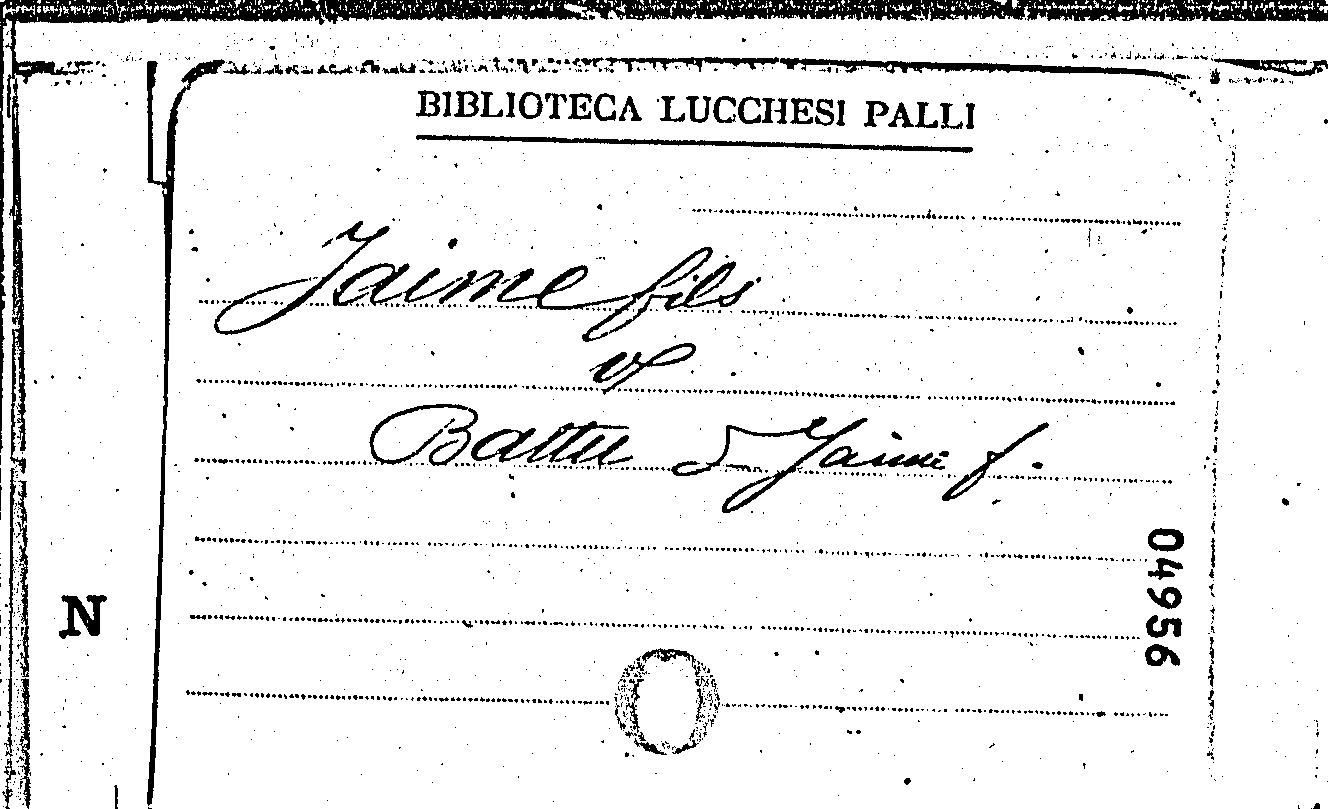 BIBLIOTECA LUCCHESI PALLI
Jaime fils
V
Battu & Jaime f.
04956
N